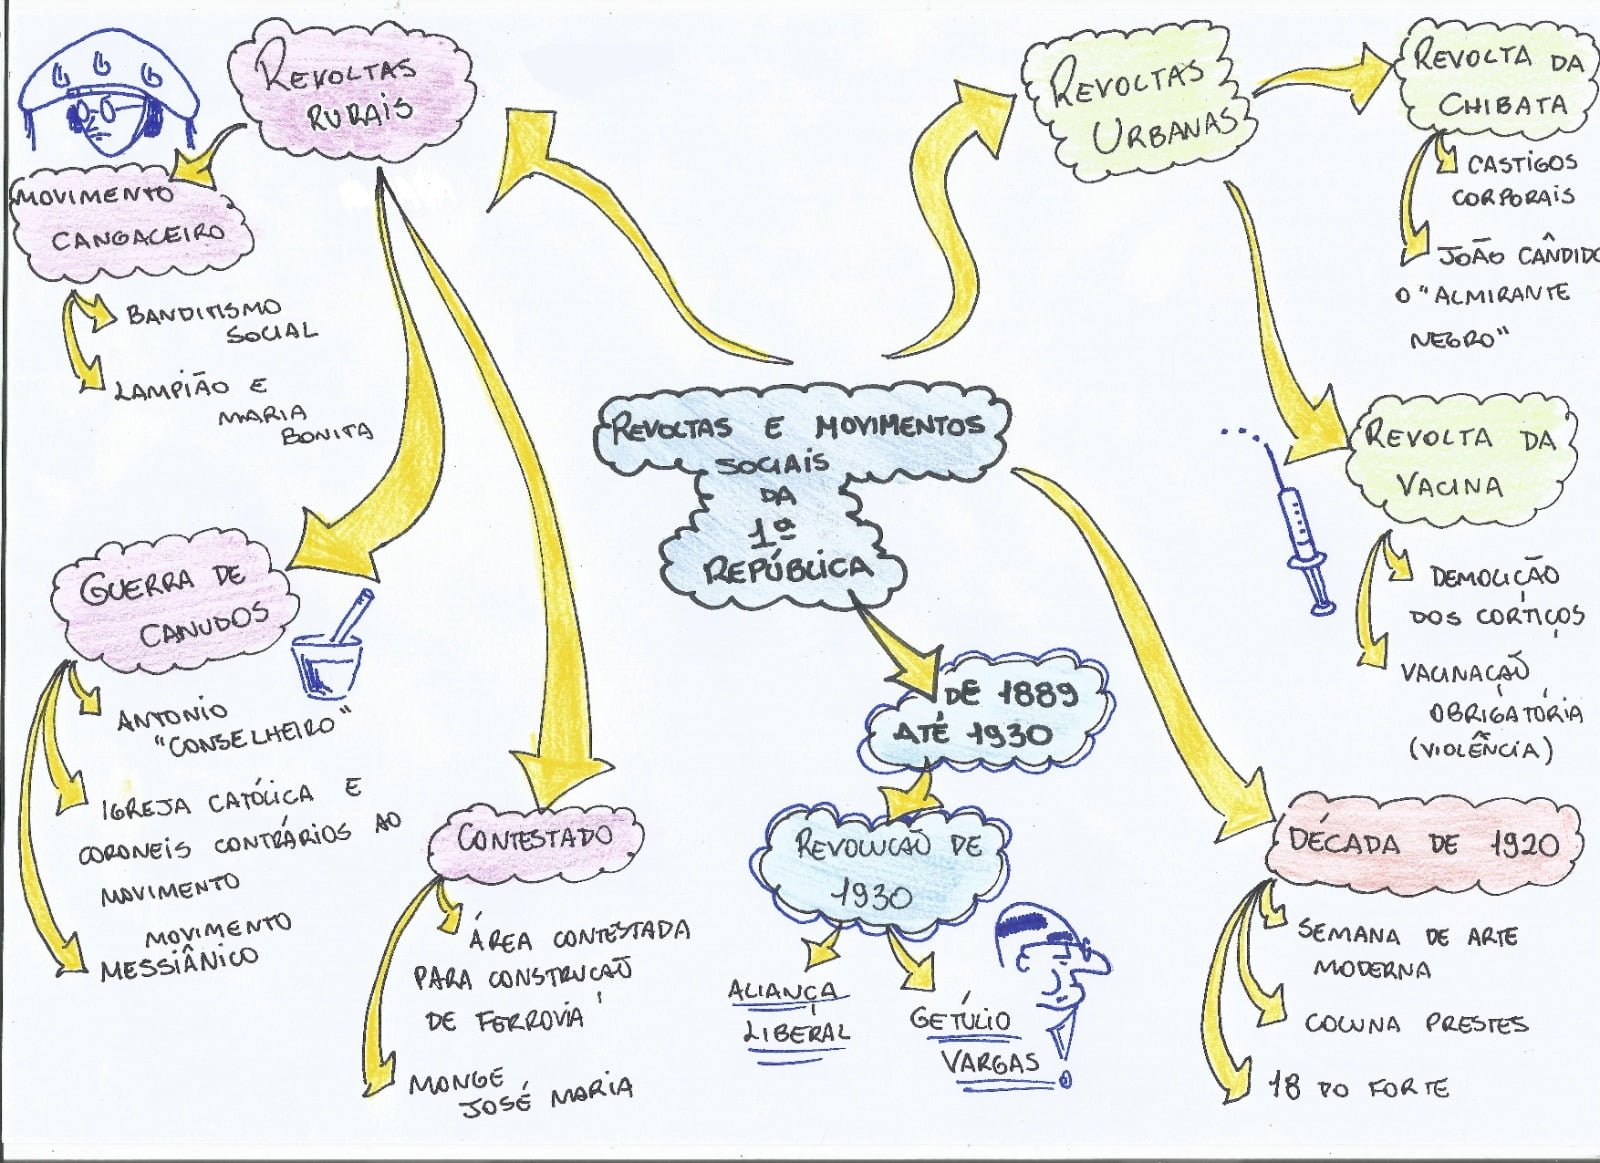 REVOLTAS
RURAIS
MOVIMENTO
CANGACEIRO
BANDITISMO
SOCIAL
LAMPIÃO E
MARIA
BONITA
GUERRA DE
CANUDOS
ANTONIO
"CONSELHEIRO"
IGREJA CATÓLICA E
CORONEIS CONTRÁRIOS AO
MOVIMENTO
MOVIMENTO
MESSIÂNICO
CONTESTADO
ÁREA CONTESTADA
PARA CONSTRUÇÃO
DE FERROVIA
MONGE
JOSÉ MARIA
REVOLTAS E MOVIMENTOS
SOCIAIS
DA
1ª
REPÚBLICA
DE 1889
ATÉ 1930
REVOLUÇÃO DE
1930
ALIANÇA
LIBERAL
GETÚLIO
VARGAS
REVOLTAS
URBANAS
REVOLTA DA
CHIBATA
CASTIGOS
CORPORAIS
JOÃO CÂNDIDO
O "ALMIRANTE
NEGRO"
REVOLTA DA
VACINA
DEMOLIÇÃO
DOS CORTIÇOS
VACINAÇÃO
OBRIGATÓRIA
(VIOLÊNCIA)
DÉCADA DE 1920
SEMANA DE ARTE
MODERNA
COLUNA PRESTES
18 DO FORTE